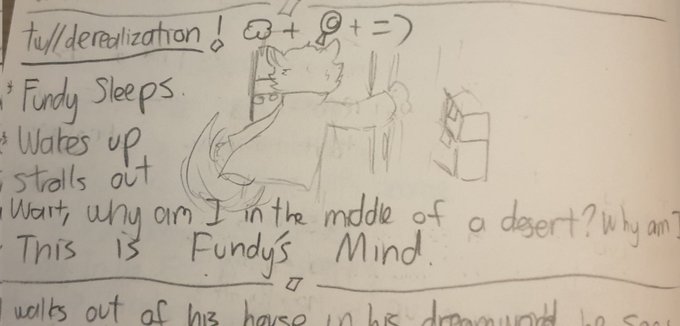 tw//derealization! + + =)
* Fundy Sleeps.
* Wakes up
strolls out
Wart, why am I in the middle of a desert? Why am I
This is Fundy's Mind.
walks out of his house in his dreamworld he